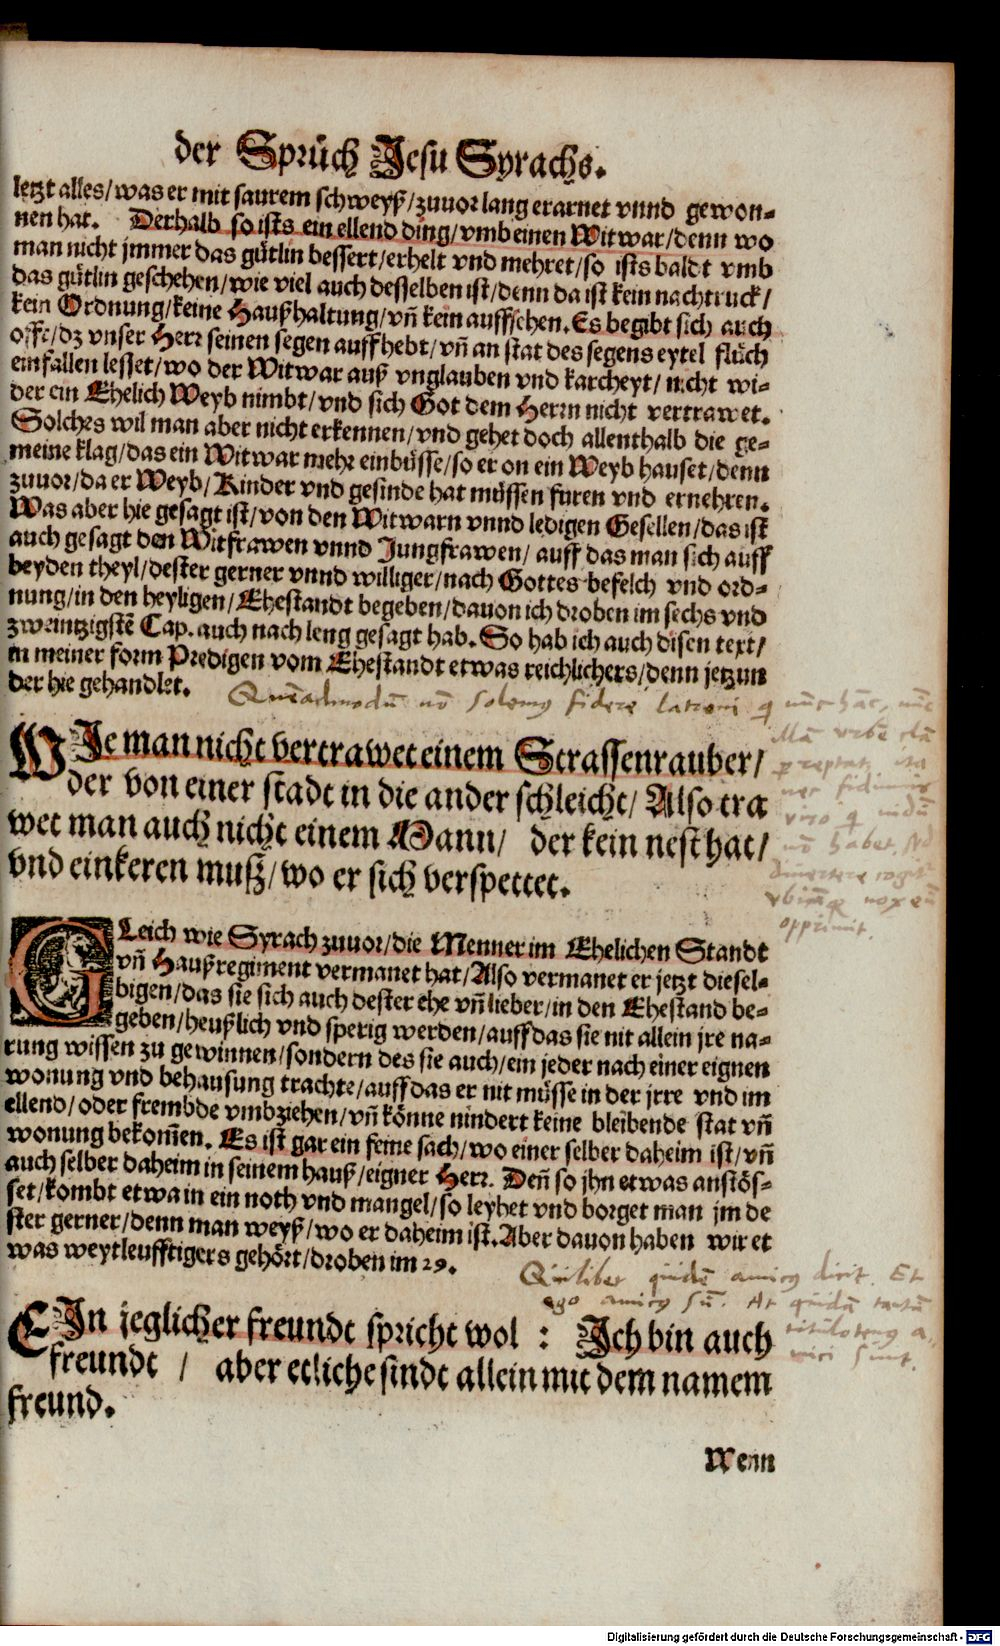 der Sprüch Jesu Syrachs.
letzt alles/ was er mit saurem schweyß/ zuuor lang erarnet vnnd gewon-
nen hat. Derhalb so ists ein ellend ding/ vmb einen Witwar/ denn wo
man nicht jmmer das gütlin bessert/ erhelt vnd mehret/ so ists baldt vmb
das gütlin geschehen/ wie viel auch desselben ist/ denn da ist kein nachtruck/
kein Ordnung/ keine Haußhaltung/ vñ kein auffsehen. Es begibt sich auch
offt/ dz vnser Herr seinen segen auffhebt/ vñ an stat des segens eytel flüch
einfallen lesset/ wo der Witwar auß vnglauben vnd karcheyt/ nicht wi-
der ein Ehelich Weyb nimbt/ vnd sich Got dem Herrn nicht vertrawet.
Solches wil man aber nicht erkennen/ vnd gehet doch allenthalb die ge-
meine klag/ das ein Witwar mehr einbüsse/ so er on ein Weyb hauset/ denn
zuuor/ da er Weyb/ Kinder vnd gesinde hat müssen furen vnd ernehren.
Was aber hie gesagt ist/ von den Witwarn vnnd ledigen Gesellen/ das ist
auch gesagt den Witfrawen vnnd Jungfrawen/ auff das man sich auff
beyden theyl/ dester gerner vnnd williger/ nach Gottes befelch vnd ord-
nung/ in den heyligen/ Ehestandt begeben/ dauon ich droben im sechs vnd
zweintzigstẽ Cap. auch nach leng gesagt hab. So hab ich auch disen text/
in meiner form Predigen vom Ehestandt etwas reichlichers/ denn jetzun
der hie gehandlet.
Quẽadmodũ nõ solemus fidere latroni q nũc hãc, nũc
illã urbẽ clã
preptat, ita
nec fidimus
viro q nidũ
nõ habet, sed
divertere cogit
ubicũq nox eũ
opprimit.
WIe man nicht vertrawet einem Strassenrauber/
der von einer stadt in die ander schleicht/ Also tra
wet man auch nicht einem Mann/ der kein nest hat/
vnd einkeren muß/ wo er sich verspettet.
GLeich wie Syrach zuuor/ die Menner im Ehelichen Standt
vñ Haußregiment vermanet hat/ Also vermanet er jetzt diesel-
bigen/ das sie sich auch dester ehe vñ lieber/ in den Ehestand be-
geben/ heußlich vnd sperig werden/ auff das sie nit allein jre na-
rung wissen zu gewinnen/ sondern des sie auch/ ein jeder nach einer eignen
wonung vnd behausung trachte/ auff das er nit müsse in der jrre vnd im
ellend/ oder frembde vmbziehen/ vñ könne nindert keine bleibende stat vñ
wonung bekom̃en. Es ist gar ein feine sach/ wo einer selber daheim ist/ vñ
auch selber daheim in seinem hauß/ eigner Herr. Deñ so jhn etwas anstös-
set/ kombt etwa in ein noth vnd mangel/ so leyhet vnd borget man jm de
ster gerner/ denn man weyß/ wo er daheim ist. Aber dauon haben wir et
was weytleufftigers gehört/ droben im 29.
Quilibet quidẽ amicus dicit. Et
ego amicus sũ. At quidã tantũ
titulotenus a-
mici sunt.
EIn jeglicher freundt spricht wol : Ich bin auch
freundt / aber etliche sindt allein mit dem namem
freund.
Wenn
Digitalisierung gefördert durch die Deutsche Forschungsgemeinschaft - DFG